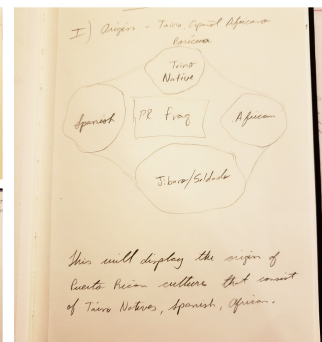 I) Origins - Taino, Español Africano
Boricua
Taino
Native
Spanish
PR Frag
African
Jibaro/Soldado
This will display the origin of
Puerto Rican culture that consist
of Taino Natives, Spanish, African.